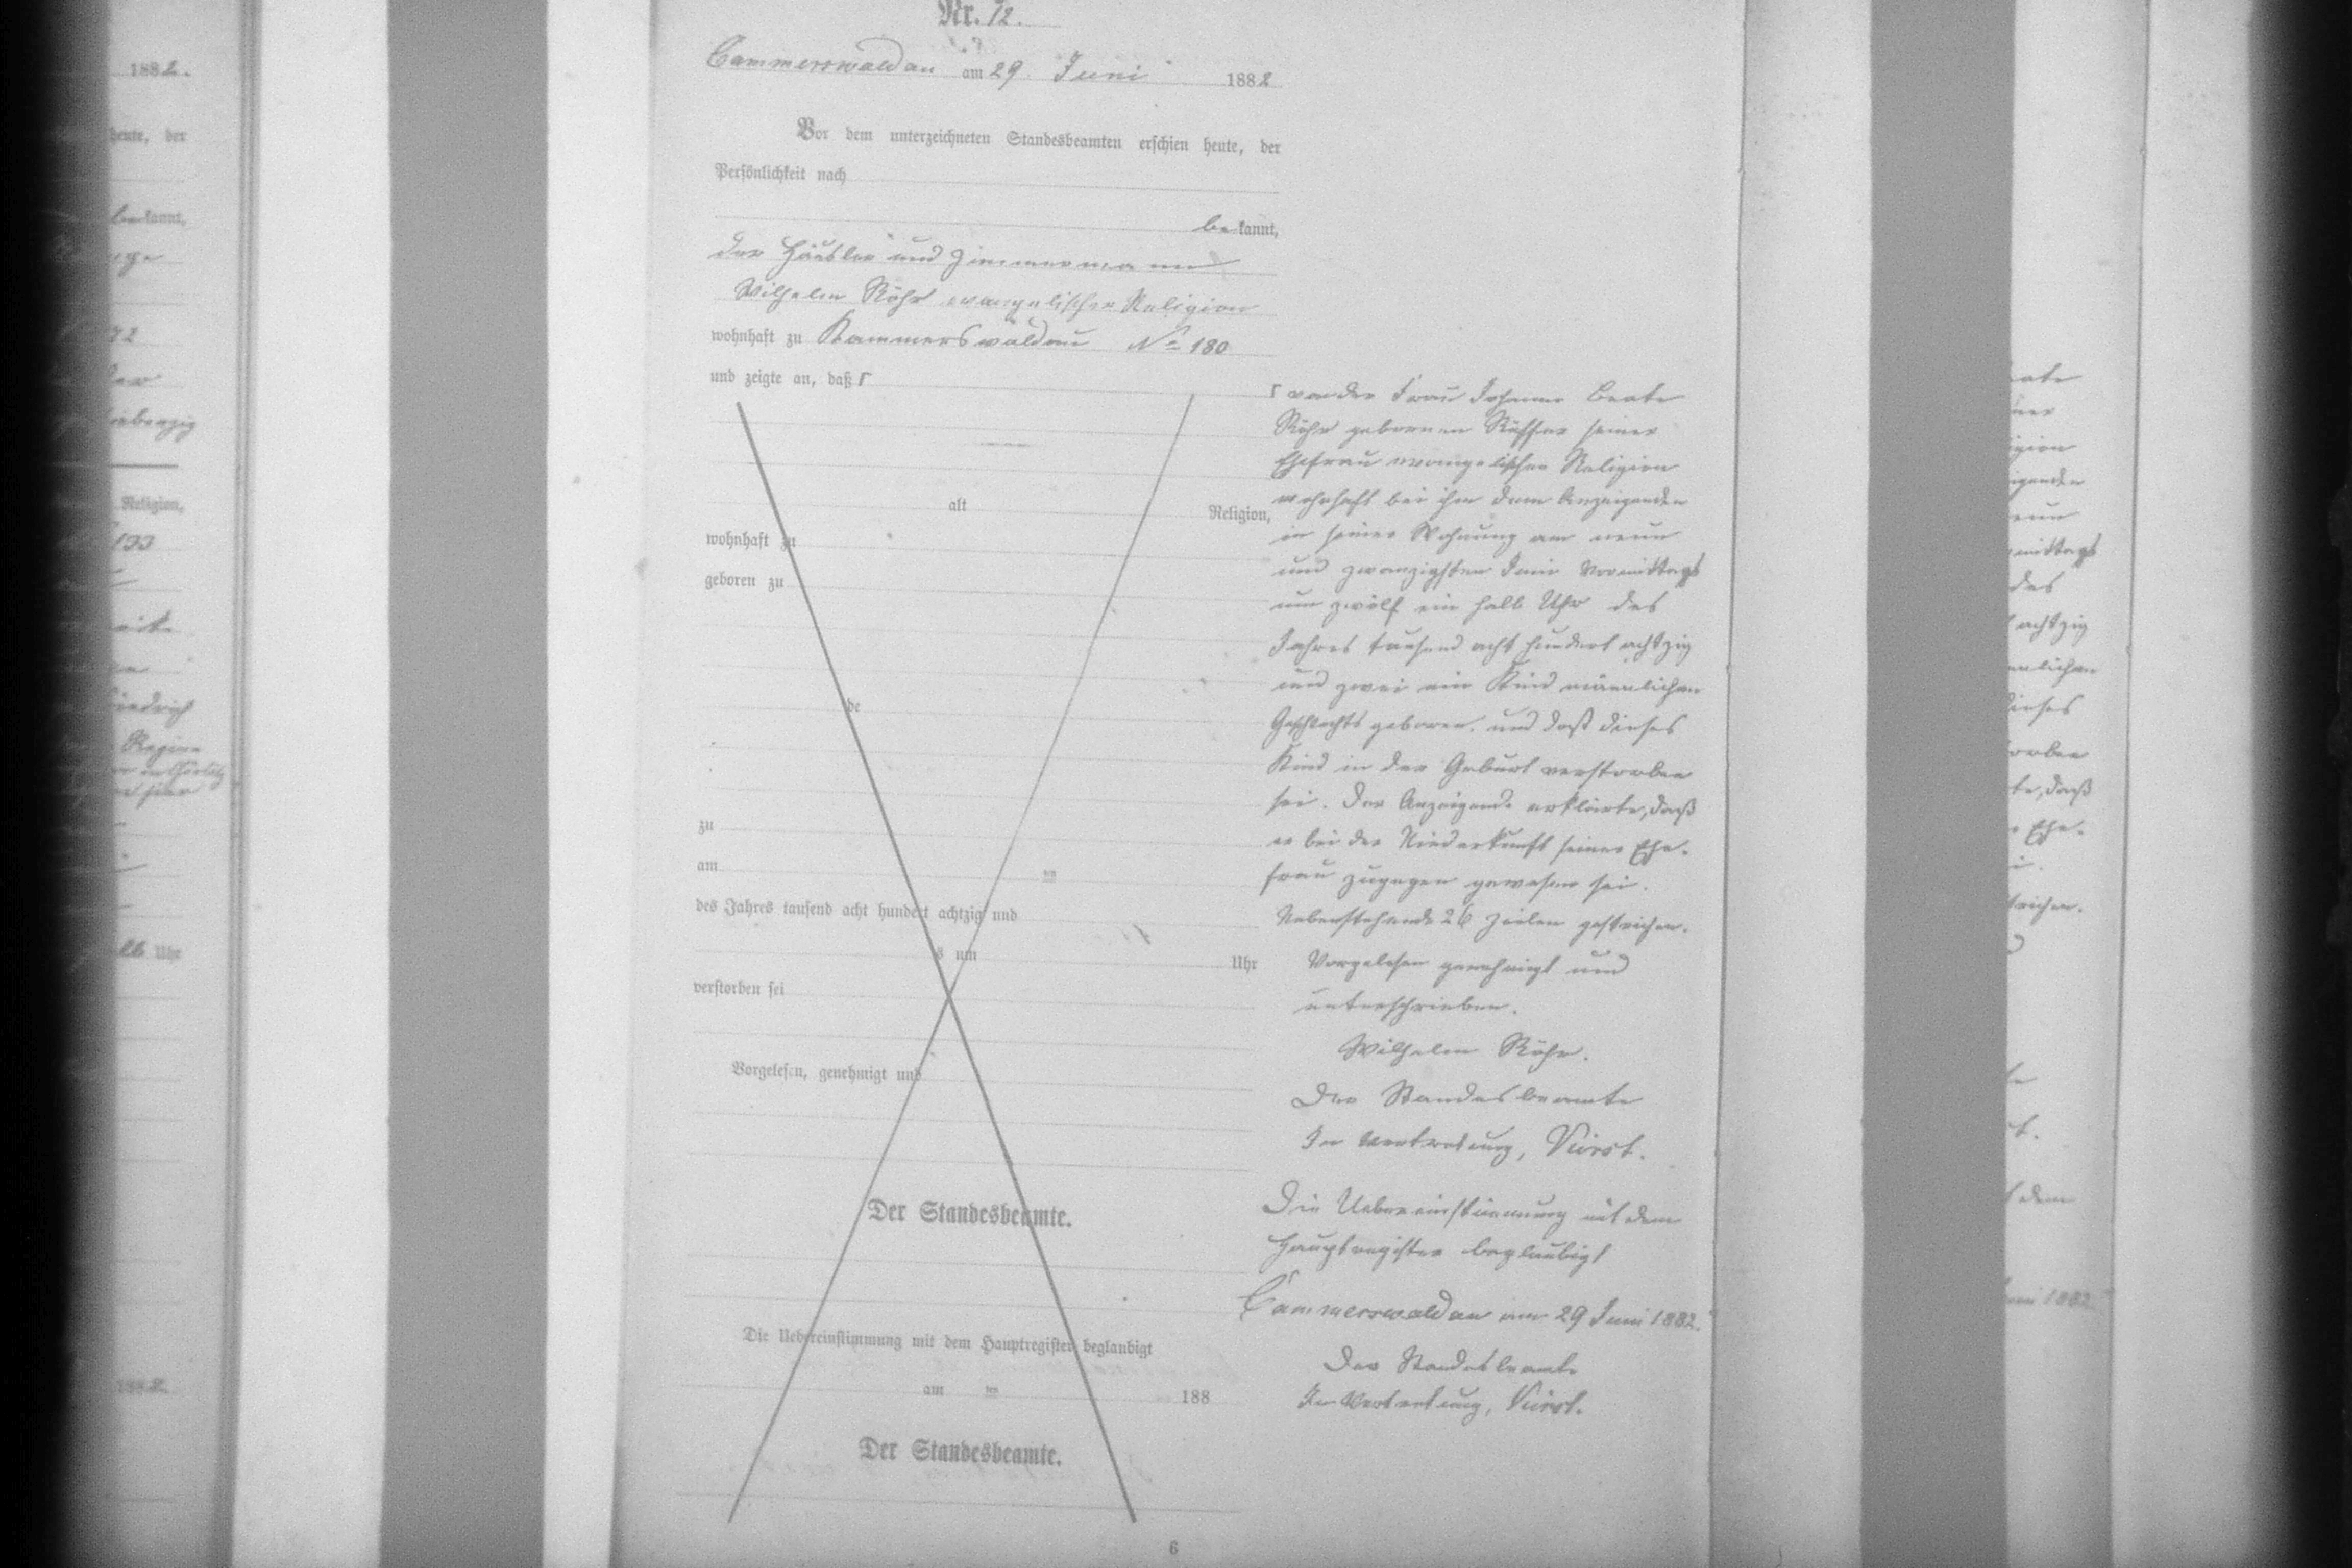 Nr. 72.
Cammerswaldau am 29 Juni 1882
Vor dem unterzeichneten Standesbeamten erschien heute, der
Persönlichkeit nach
bekannt,
der Häusler und Zimmermann
Wilhelm Röhr evangelischer Religion
wohnhaft zu Kammerswaldau No 180
und zeigte an, daß Γ
alt Religion,
wohnhaft zu
geboren zu
de
zu
am ten
des Jahres tausend acht hundert achtzig und
s um Uhr
verstorben sei
Vorgelesen, genehmigt und
Der Standesbeamte.
Die Uebereinstimmung mit dem Hauptregister beglaubigt
am ten 188
Der Standesbeamte.
6
Γ von der Frau Johanne Beate
Röhr gebornen seiner
Ehefrau evangelischer Religion
wohnhaft bei ihm dem Anzeigenden
in seiner Wohnung am neun
und zwanzigsten Juni Vormittags
um zwölf ein halb Uhr des
Jahres tausend acht hundert achtzig
und zwei ein Kind männlichen
Geschlechts geboren, und daß dieses
Kind in der Geburt verstorben
sei. Der Anzeigende erklärte, daß
er bei der Niederkunft seiner Ehe-
frau zugegen gewesen sei.
Nebenstehende 26 Zeilen gestrichen.
Vorgelesen genehmigt und
unterschrieben.
Wilhelm Röhr.
Der Standesbeamte
In Vertretung,
Die Uebereinstimmung mit dem
Hauptregister beglaubigt
Cammerswaldau am 29 Juni 1882.
Der Standesbeamte
In Vertretung,
1882.
heute, der
bekannt,
siebenzig
Religion,
133
Friedrich
Regine
Uhr
1882.